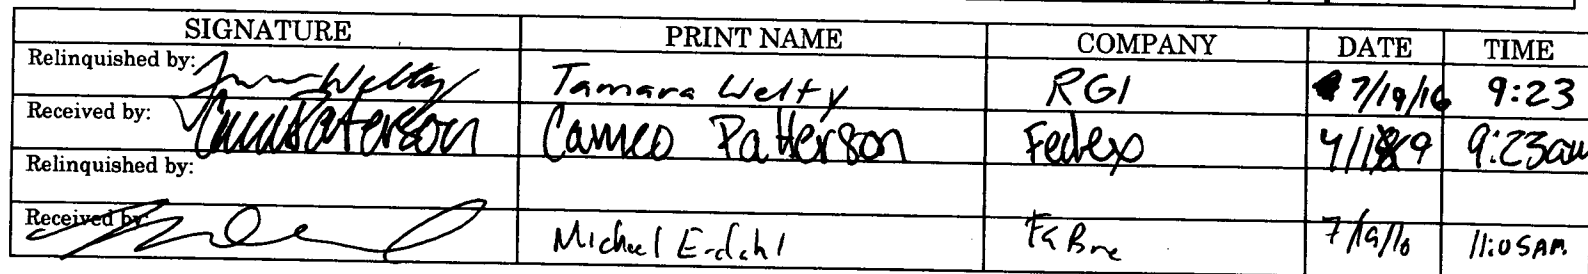 SIGNATURE PRINT NAME COMPANY DATE TIME
Relinquished by: Tamara Welty RGI 7/19/16 9:23
Received by: Cameo Patterson Fedex 9:23am
Relinquished by:
Received by: Michael Erdahl 7/19/16 11:05AM